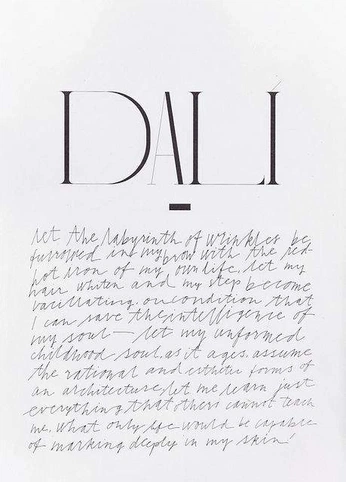 DALÍ
let the labyrinth of wrinkles be
furrowed in my brow with the red-
hot iron of my own life. let my
hair whiten and my step become
vacillating. on condition that
I can save the intelligence of
my soul — let my unformed
childhood soul. as it ages. assume
the rational and esthetic forms of
an architecture. let me learn just
everything that others cannot teach
me. what only life would be capable
of marking deeply in my skin!